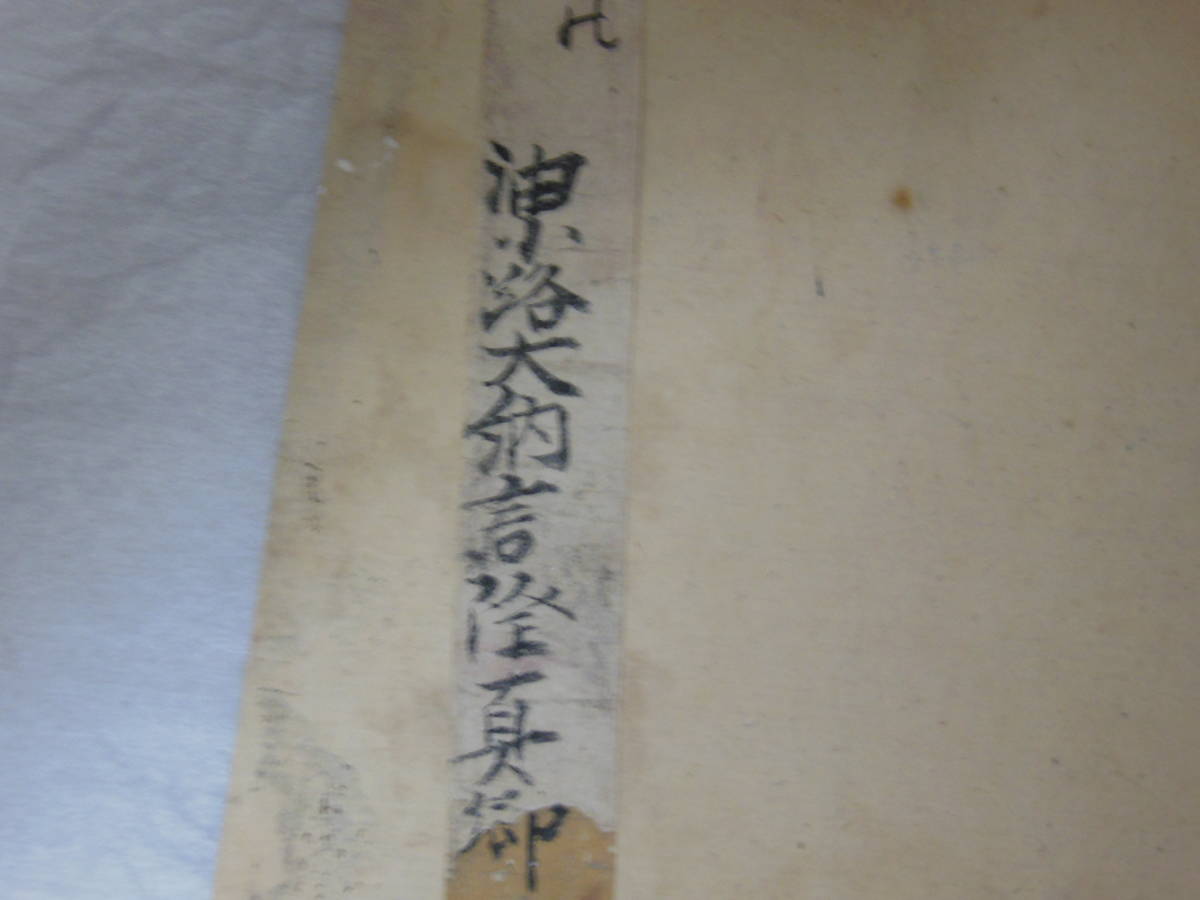 油小路大納言隆真卿